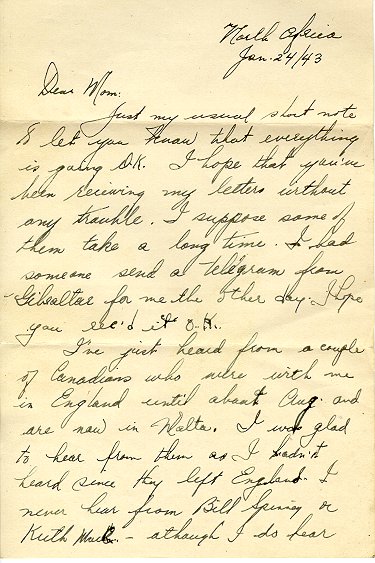 North Africa
Jan. 24/43
Dear Mom:
Just my usual short note
to let you know that everything
is going O.K. I hope that you've
been receiving my letters without
any trouble. I suppose some of
them take a long time. I had
someone send a telegram from
Gibraltar for me the other day. I hope
you rec'd it O.K.
I've just heard from a couple
of Canadians who were with me
in England until about Aug. and
are now in Malta. I was glad
to hear from them as I hadn't
heard since they left England. I
never hear from Bill or
Keith - although I do hear